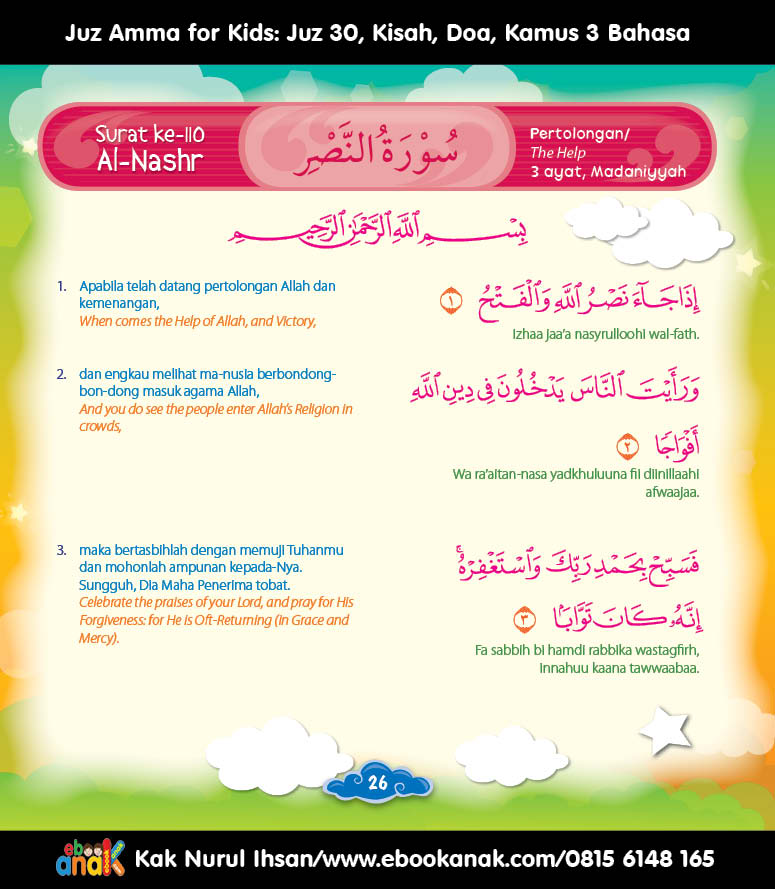 Juz Amma for Kids: Juz 30, Kisah, Doa, Kamus 3 Bahasa
Surat ke-110
Al-Nashr
سُوْرَةُ النَّصْرِ
Pertolongan/
The Help
3 ayat, Madaniyyah
بِسْمِ ٱللَّهِ ٱلرَّحْمَٰنِ ٱلرَّحِيمِ
1. Apabila telah datang pertolongan Allah dan
kemenangan,
When comes the Help of Allah, and Victory,
إِذَا جَآءَ نَصْرُ ٱللَّهِ وَٱلْفَتْحُ ١
Izhaa jaa’a nasyrulloohi wal-fath.
2. dan engkau melihat ma-nusia berbondong-
bon-dong masuk agama Allah,
And you do see the people enter Allah’s Religion in
crowds,
وَرَأَيْتَ ٱلنَّاسَ يَدْخُلُونَ فِى دِينِ ٱللَّهِ
أَفْوَاجًا ٢
Wa ra’aitan-nasa yadkhuluuna fii diinillaahi
afwaajaa.
3. maka bertasbihlah dengan memuji Tuhanmu
dan mohonlah ampunan kepada-Nya.
Sungguh, Dia Maha Penerima tobat.
Celebrate the praises of your Lord, and pray for His
Forgiveness: for He is Oft-Returning (in Grace and
Mercy).
فَسَبِّحْ بِحَمْدِ رَبِّكَ وَٱسْتَغْفِرْهُ ۚ
إِنَّهُۥ كَانَ تَوَّابًۢا ٣
Fa sabbih bi hamdi rabbika wastagfirh,
innahuu kaana tawwaabaa.
26
ebook anak Kak Nurul Ihsan/www.ebookanak.com/0815 6148 165